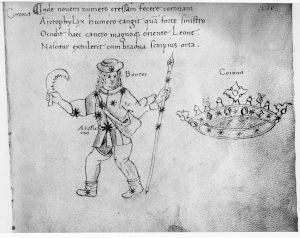 Corona
Unde novem numero cressam fecere coronam
Arctophylax humero tangit qua forte sinistro
Occidit haec cancro magnoque oriente Leone
Nascitur extulerit cum brachia scorpius orta.
Bootes
Corona
Arctu
rus